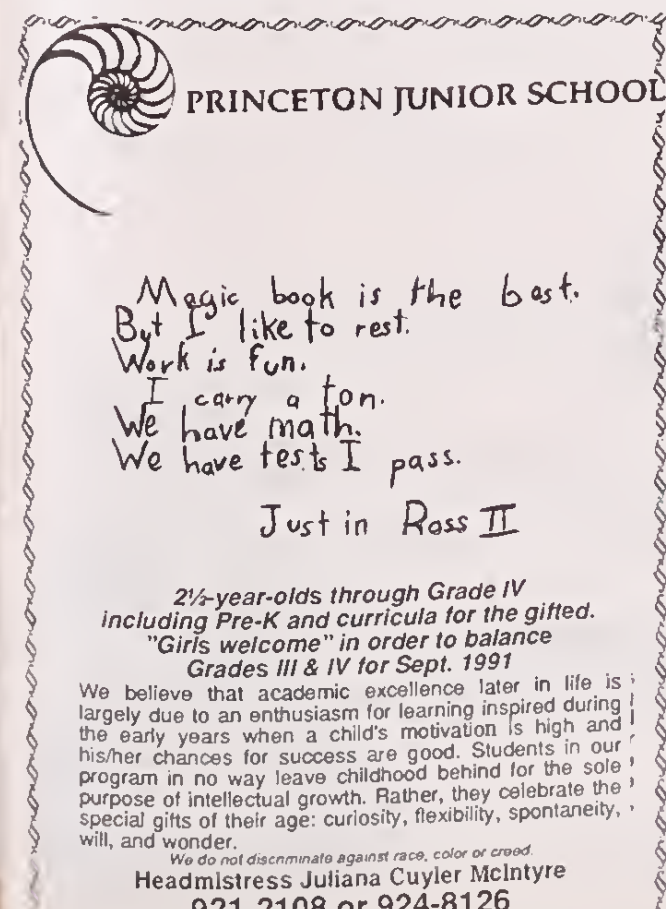 PRINCETON JUNIOR SCHOOL
Magic book is the best.
But I like to rest.
Work is fun.
I carry a ton.
We have math.
We have tests I pass.
Justin Ross II
2½-year-olds through Grade IV
including Pre-K and curricula for the gifted.
"Girls welcome" in order to balance
Grades III & IV for Sept. 1991
We believe that academic excellence later in life is
largely due to an enthusiasm for learning inspired during
the early years when a child's motivation is high and
his/her chances for success are good. Students in our
program in no way leave childhood behind for the sole
purpose of intellectual growth. Rather, they celebrate the
special gifts of their age: curiosity, flexibility, spontaneity,
will, and wonder.
We do not discriminate against race, color or creed.
Headmistress Juliana Cuyler McIntyre
921-2108 or 924-8126